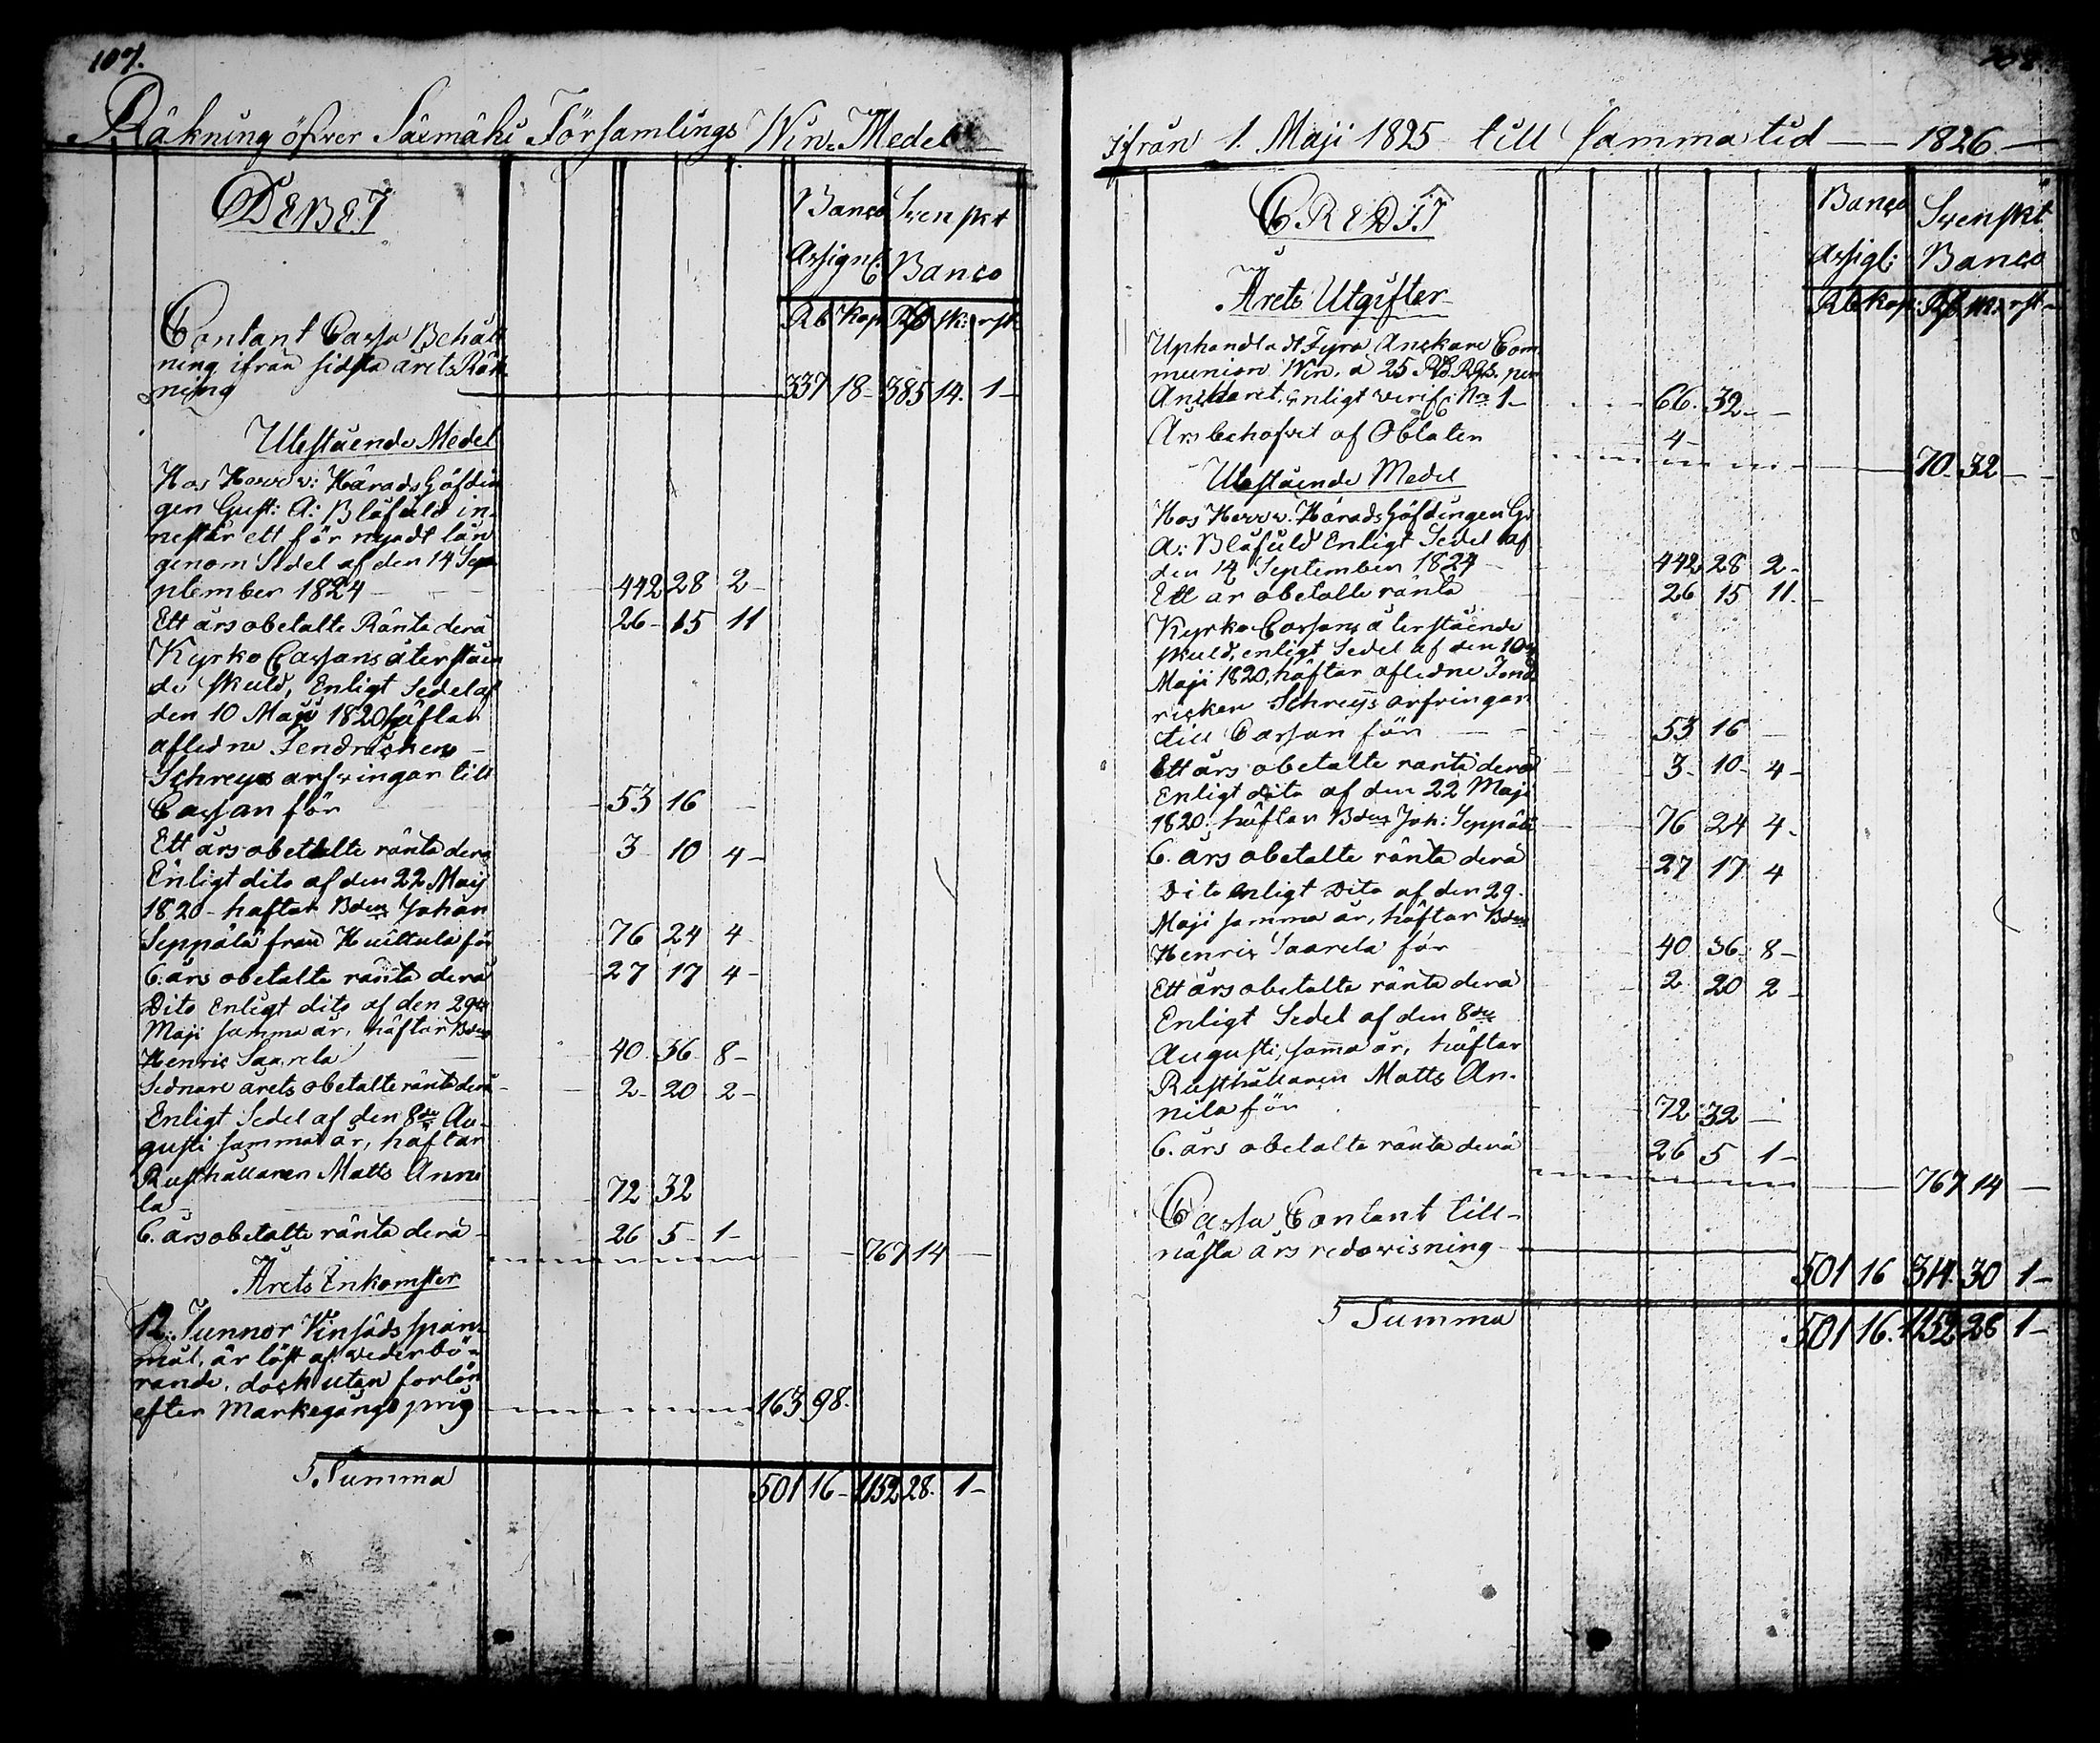 107.
Räkning öfver Säxmäki Församlings Win Medel
DEBET
Banco Svenskt
Assign: Banco
Rb kop Rd sk: rst
Contant Cassa Behåll
ning ifrån sidsta årets Räk
ning 337 18 385 14. 1
Utestående Medel
Hos Herr v: Härads Höfdin
gen Gust: A: Blåfield in-
nestår ett för nyadt lån
genom Sedel af den 14 Sep
ptember 1824 442 28 2
Ett års obetalte Ränta derå 26 15 11
Kyrko Cassans återståen
de skuld, Enligt Sedel af
den 10 Maji 1820 häftar
aflidne Fendricken
Schreys arfvingar till
Cassan för 53 16
Ett års obetalte ränta derå 3 10 4
Enligt dito af den 22 Maij
1820 häftar Bden Johan
Seppälä från Huittula för 76 24 4
6. års obetalte ränta derå 27 17 4
Dito Enligt dito af den 29de
Maji samma år, häftar Bden
Henric Saarela 40 36 8
Sednare årets obetalte ränta derå 2 20 2
Enligt Sedel af den 8de Au-
gusti samma år, häftar
Rusthållaren Matts Anni
la 72 32
6. års obetalte ränta derå 26 5 1
767 14
Årets Inkomster
12. Tunnor Vinsäds span-
mål, är löst af vederbö-
rande, dock utan forlön
efter Markegångs pris 163 98.
S. Summa 501 16 1152 28. 1
108.
ifrån 1. Maji 1825 till samma tid 1826.
CREDIT
Banco Svenskt
Assigl: Banco
Rb kop: Rd sk: rst
Årets Utgifter
Uphandladt Fyra Anckare Com
munion Win, a 25 Rd Rgs. per
Anckaret, enligt verif: No 1 66. 32
Års behofvet af Oblaten 4
70. 32
Utestående Medel
Hos Herr v. Härads Höfdingen G:
A: Blåfield Enligt Sedel af
den 14 September 1824 442 28 2
Ett år obetalte ränta 26 15 11.
Kyrko Cassans återstående
skuld, enligt Sedel af den 10de
Maji 1820, häftar aflidne Fend
ricken Schreys arfvingar
till Cassan för 53 16
Ett års obetalte ränta derå 3 10 4
Enligt dito af den 22 Maji
1820. häftar Bden Joh: Seppälä 76 24 4
6. års obetalte ränta derå 27 17 4
Dito enligt Dito af den 29.
Maji samma år, häftar Bden
Henric Saarela för 40 36 8
Ett års obetalte ränta derå 2 20 2
Enligt Sedel af den 8de
Augusti, samma år, häftar
Rusthållaren Matts An-
nila för 72 32
6. års obetalte ränta derå 26 5 1
767 14
Cassa Contant till
nästa års redovisning
501 16 314. 30 1
S Summa 501 16. 1152 28 1